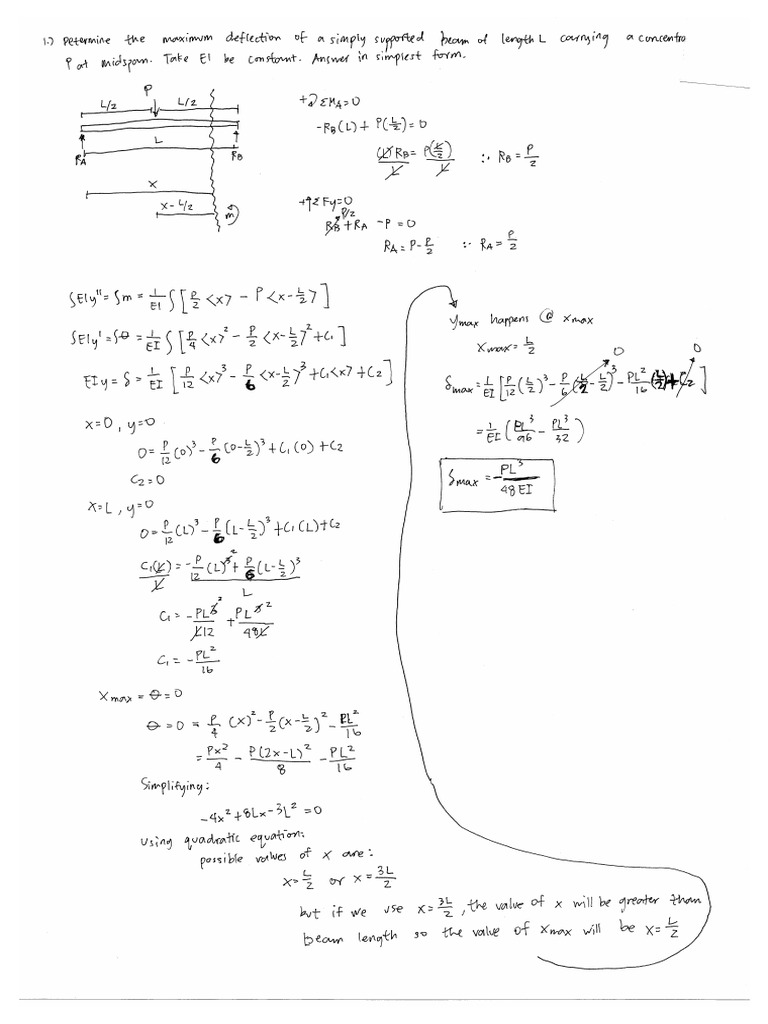 1.) Determine the maximum deflection of a simply supported beam of length L carrying a concentra
P at midspan. Take EI be constant. Answer in simplest form.
P
L/2 L/2
L
RA RB
x
x-L/2
m
+↻ ΣMA=0
-RB(L) + P(L/2) = 0
(L)RB/L = P(L/2)/L ∴ RB = P/2
+↑ΣFy=0
P/2
RB + RA - P = 0
RA = P - P/2 ∴ RA = P/2
∫EIy'' = ∫m = 1/EI ∫[P/2 <x> - P<x-L/2>]
∫EIy' = ∫θ = 1/EI ∫[P/4 <x>² - P/2 <x-L/2>² + C1]
EIy = δ = 1/EI [P/12 <x>³ - P/6 <x-L/2>³ + C1<x> + C2]
x=0, y=0
0 = P/12 (0)³ - P/6 (0-L/2)³ + C1(0) + C2
C2=0
x=L, y=0
0 = P/12 (L)³ - P/6 (L-L/2)³ + C1(L) + C2
C1(L)/L = -P/12 (L)³ ² + P/6 (L-L/2)³ / L
C1 = -PL³ ²/L12 + PL³ ²/48L
C1 = -PL²/16
xmax = θ = 0
θ = 0 = P/4 (x)² - P/2 (x-L/2)² - PL²/16
= Px²/4 - P(2x-L)²/8 - PL²/16
Simplifying:
-4x² + 8Lx - 3L² = 0
Using quadratic equation:
possible values of x are:
x = L/2 or x = 3L/2
but if we use x = 3L/2, the value of x will be greater than
beam length so the value of xmax will be x = L/2
ymax happens @ xmax
xmax = L/2
0 0
δmax = 1/EI [P/12 (L/2)³ - P/6 (L/2 - L/2)³ - PL²/16 (L/2) + C2]
= 1/EI (PL³/96 - PL³/32)
δmax = -PL³/48EI